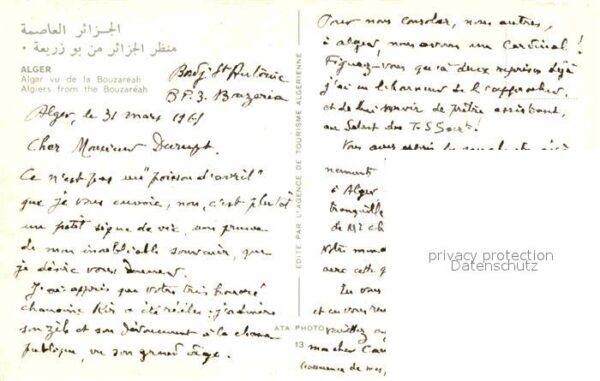 الجزائر العاصمة
منظر الجزائر من بو زريعة •
ALGER
Alger vu de la Bouzaréah
Algiers from the Bouzaréah
Bordj St Antoine
B.P. 3. Bouzaria
Alger, le 31 mars 1965
Cher Monsieur
Ce n'est pas un "poisson d'avril"
que je vous envoie, non, c'est plutôt
un petit signe de vie, une preuve
de mon inoubliable souvenir, que
je désire vous donner.
J'ai appris que votre très honoré
chanoine Kir a été réélu: j'admire
son zèle et son dévouement à la chose
publique, vu son grand âge.
EDITÉ PAR L'AGENCE DE TOURISME ALGERIENNE
ATA PHOTO
13
Pour nous consoler, nous autres,
à Alger, nous avons un Cardinal!
Figurez-vous qu'à deux reprises déjà
j'ai eu l'honneur de l'approcher,
et de lui servir de prêtre assistant,
au Salut du T.S. Sacr!
Vous avez
à Alger
tranquille
de
Notre
avec cette
et
veuillez
mon cher
privacy protection
Datenschutz